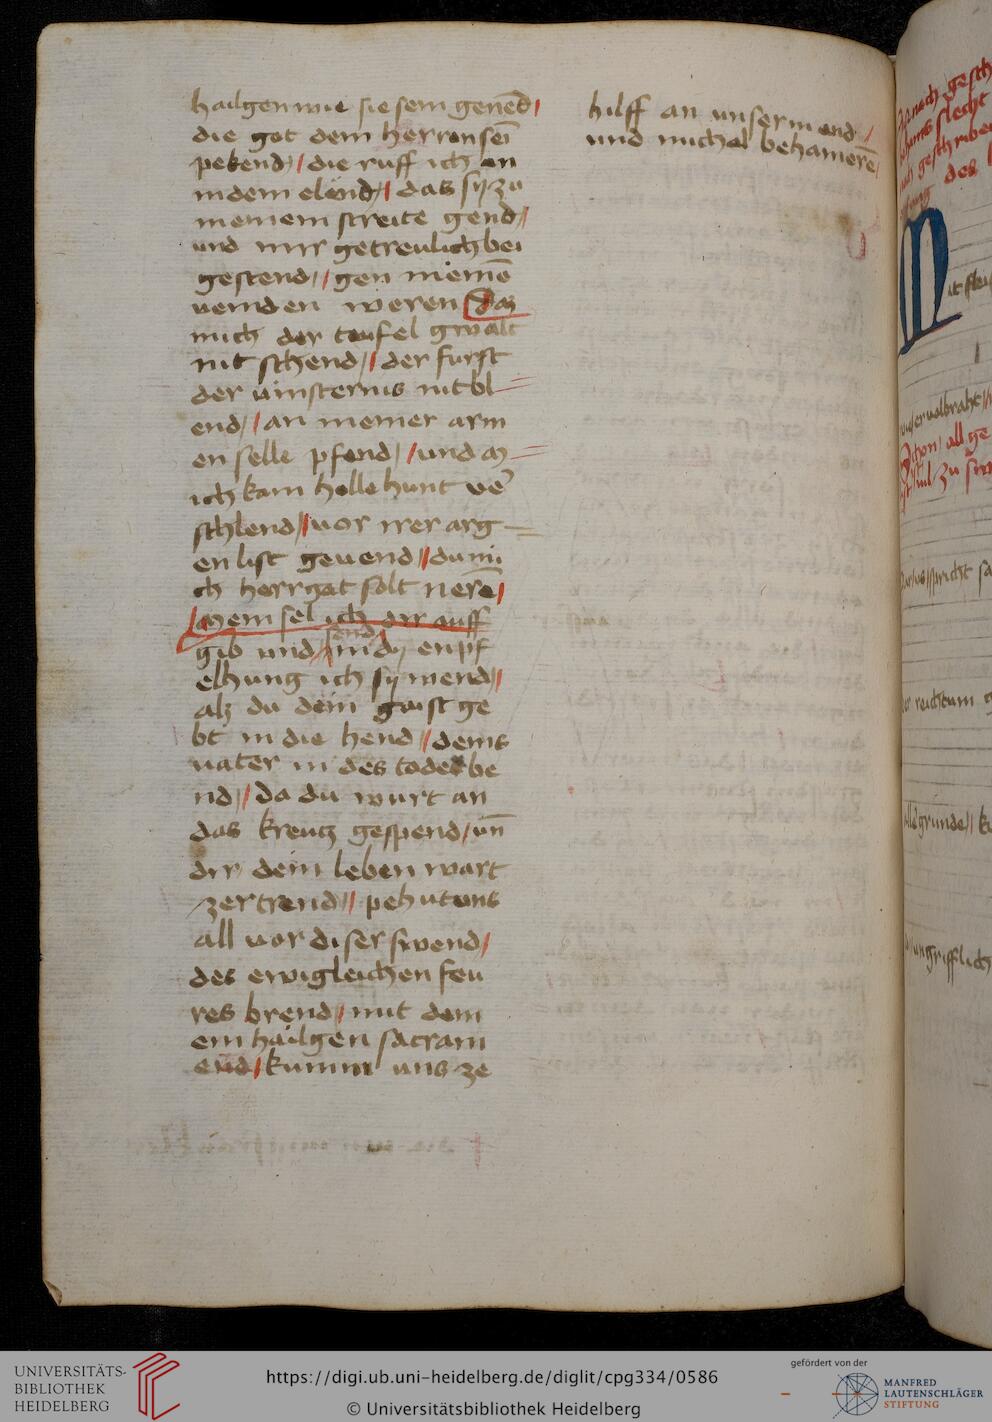 hailgen wie sie sein genend
die got dem herren sein
pekend / die ruff ich an
in dem elend / das sy zu
meinem streite gend
und mir getreulich bei
gestend / gen meinen
veinden weren das
mich der teufel gwalt
nit schend / der furst
der vinsternis nit bl
end / an meiner arm
en selle pfend / und
ich kain helle hunt ver
schlend / vor irer arg
en list gevend / du mi
ch herr got solt neren
mein sel ich dir auff
gib und send in dy enpf
elhung ich sy wend
als du dein gaist ge
bt in die hend / deins
vater in des todes be
nd / da du wurt an
das kreutz gespend / un
dir dein leben wart
zertrend / pehut uns
all vor diser swend
des ewigleichen feu
res brend / mit dem
ein hailgen sacram
end / kumm uns ze
hilff an unserm end
und michel behameren
nach gesch
geschriben
des
M
it fleis
Schon / all ge
/ spricht sa
reichtum
grunde // k
ungrifflich
UNIVERSITÄTS-
BIBLIOTHEK
HEIDELBERG
https://digi.ub.uni-heidelberg.de/diglit/cpg334/0586
© Universitätsbibliothek Heidelberg
gefördert von der
MANFRED
LAUTENSCHLÄGER
STIFTUNG